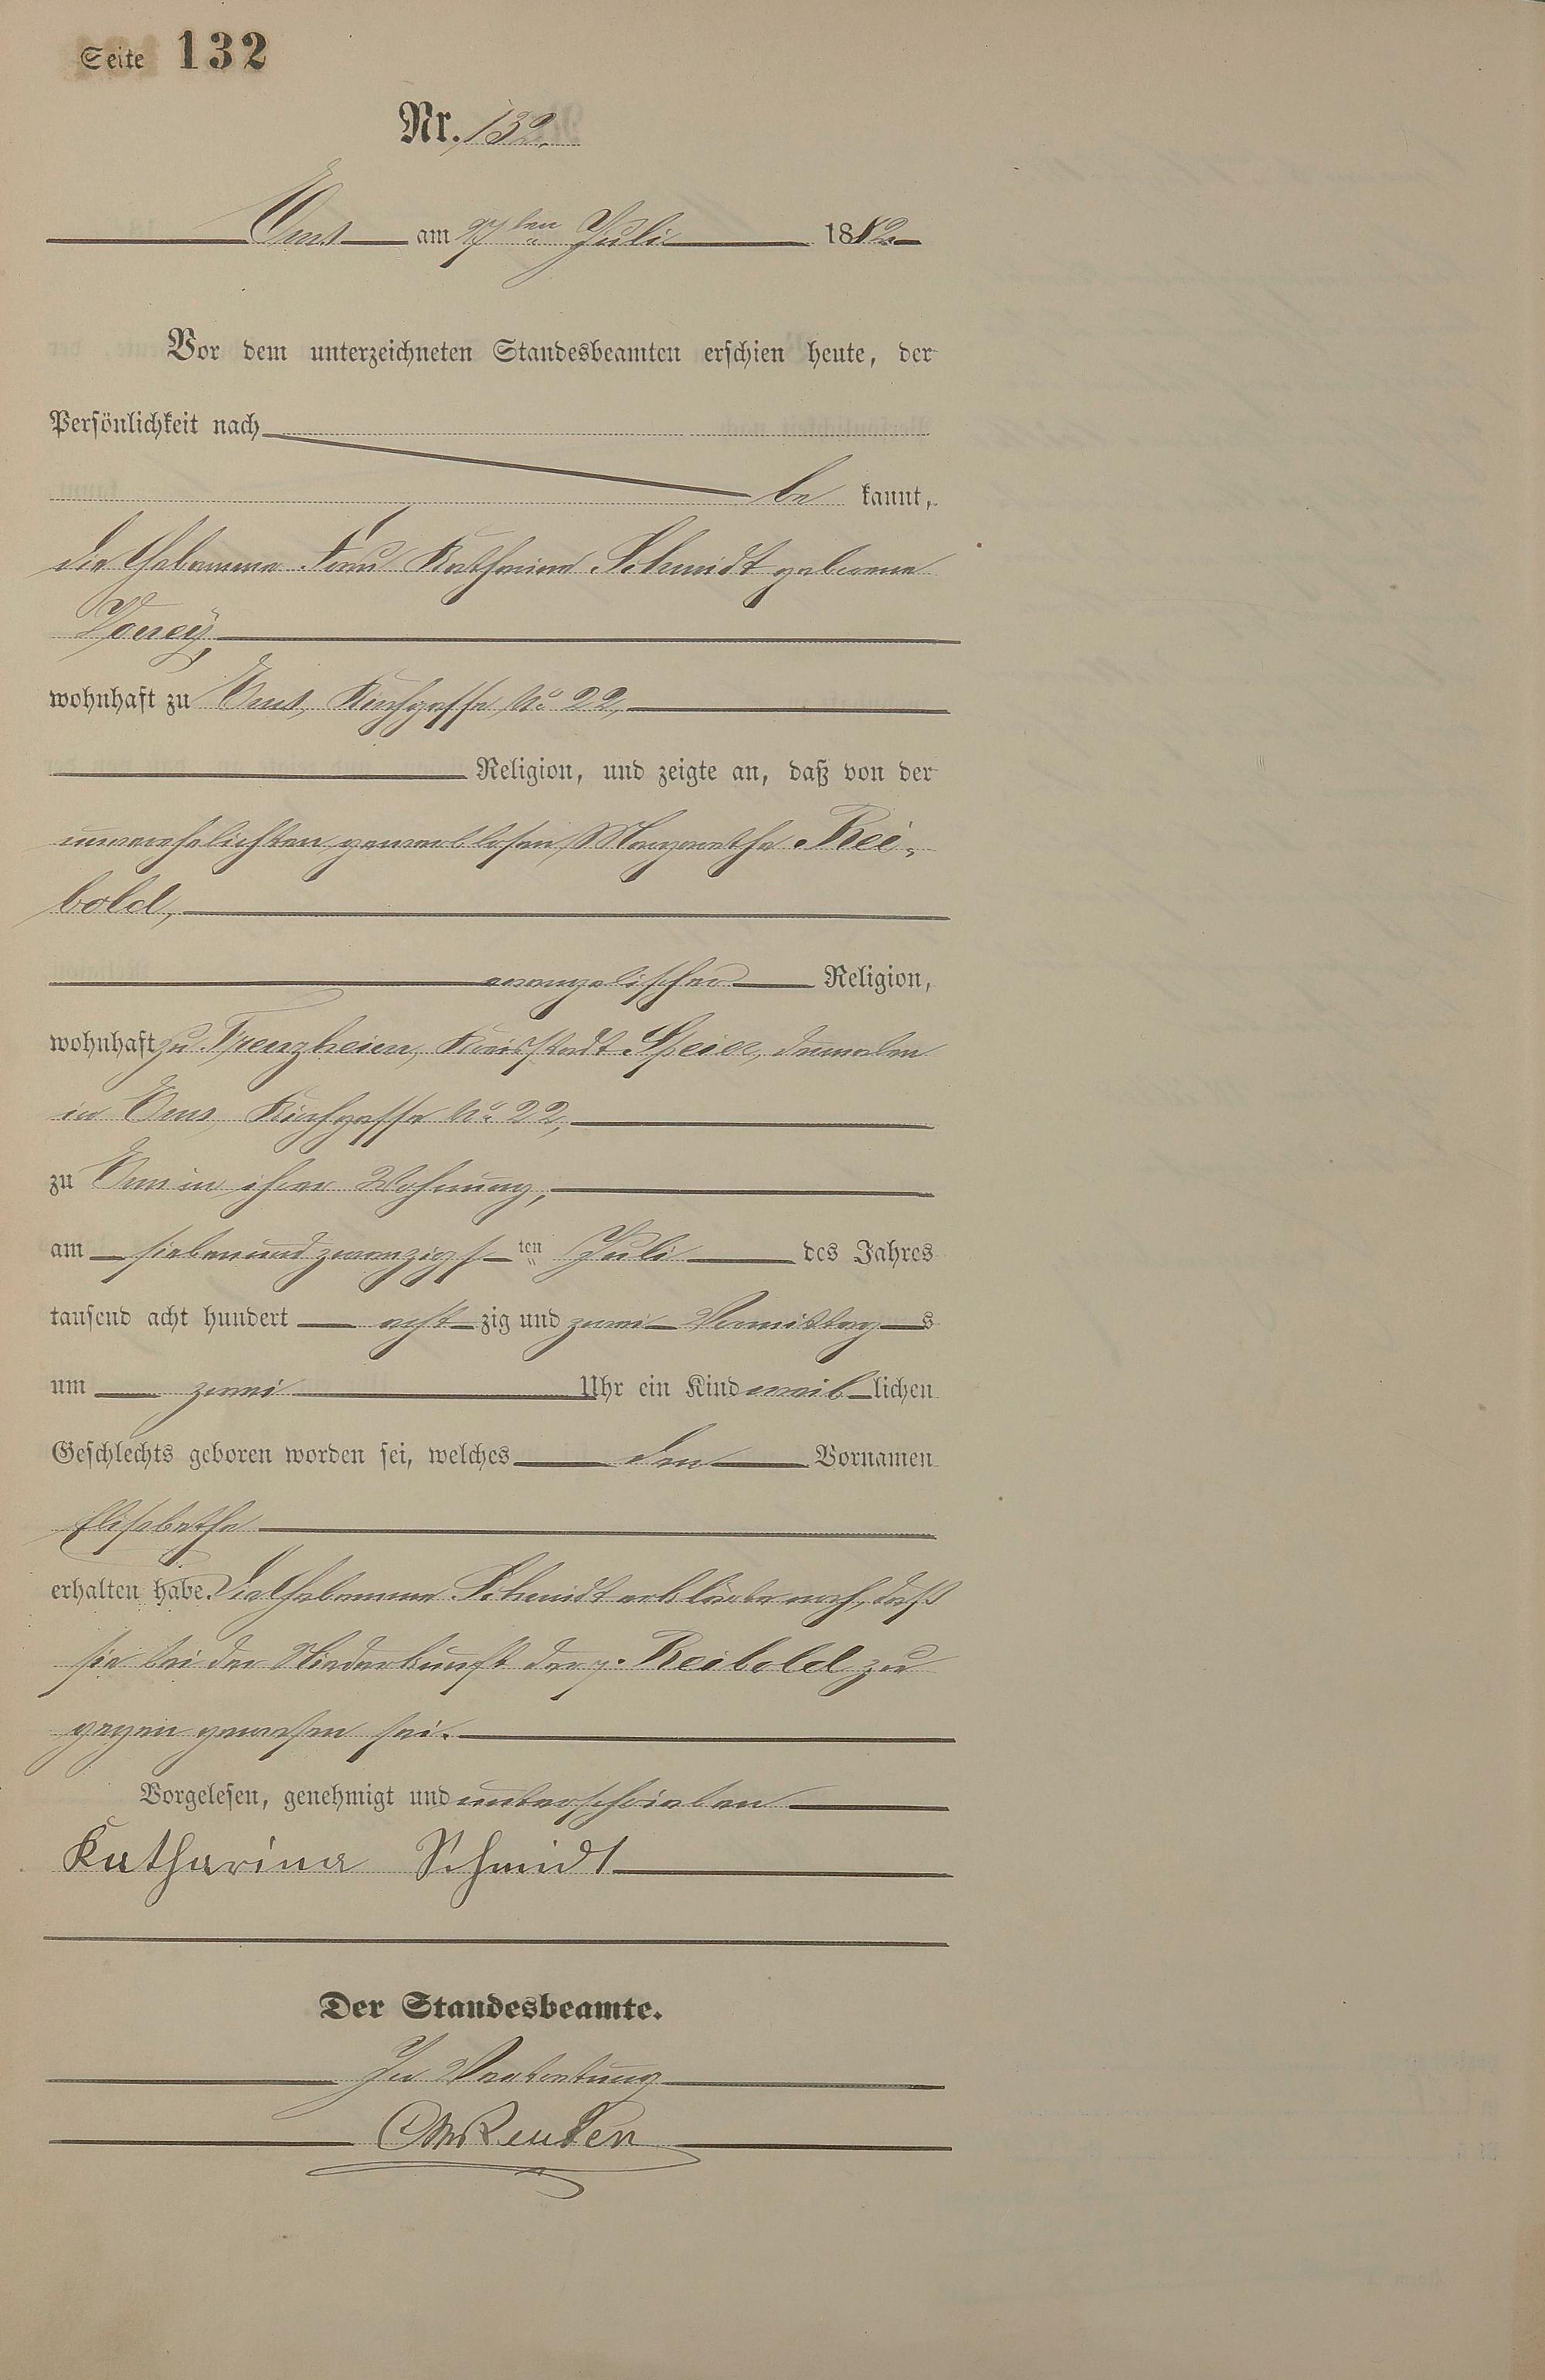 Seite 132
Nr. 132.
Ems am 27ten Juli 1882
Vor dem unterzeichneten Standesbeamten erschien heute, der
Persönlichkeit nach
be kannt,
die Hebamme Frau Katharina Schmidt geborene
wohnhaft zu Ems, Kirchgasse No 22,
Religion, und zeigte an, daß von der
unverehelichten gewerblosen Margarethe Rei-
bold,
evangelischer Religion,
wohnhaft zu Frenzheim, Kreisstadt Speier, dermalen
in Ems, Kirchgasse No 22,
zu Ems in ihrer Wohnung,
am siebenundzwanzigs ten Juli des Jahres
tausend acht hundert acht zig und zwei Vormittag s
um zwei Uhr ein Kind weib lichen
Geschlechts geboren worden sei, welches den Vornamen
Elisabetha
erhalten habe. Die Hebamme Schmidt erklärte noch, daß
sie bei der Niederkunft der p. Reibold zu
gegen gewesen sei.
Vorgelesen, genehmigt und unterschrieben
Katharina Schmidt
Der Standesbeamte.
In Vertretung